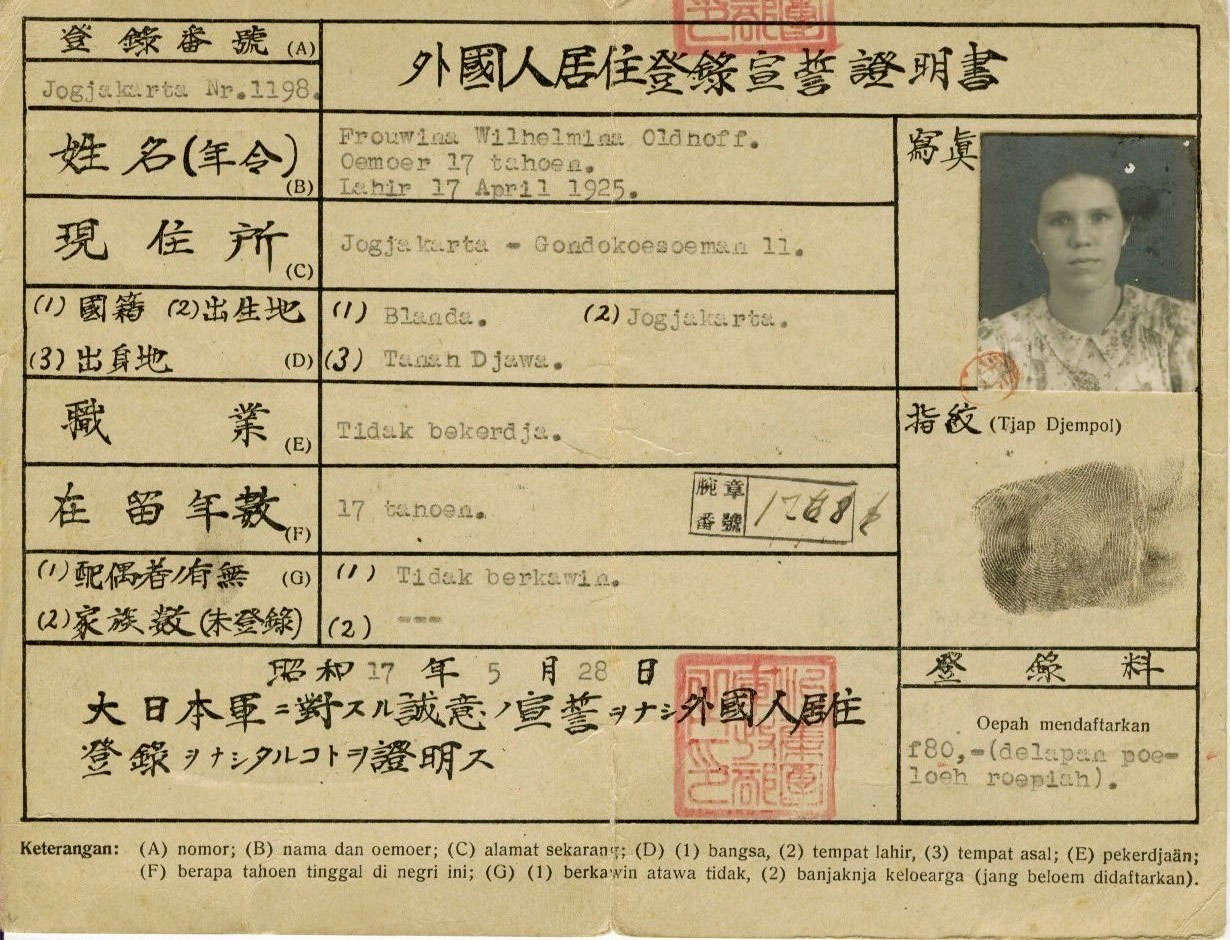 登錄番號 (A)
Jogjakarta Nr.1198.
外國人居住登錄宣誓證明書
姓名(年令) (B)
Frouwina Wilhelmina Oldhoff.
Oemoer 17 tahoen.
Lahir 17 April 1925.
寫眞
現住所 (C)
Jogjakarta - Gondokoesoeman 11.
(1) 國籍 (2) 出生地
(3) 出身地 (D)
(1) Blanda. (2) Jogjakarta.
(3) Tanah Djawa.
職業 (E)
Tidak bekerdja.
指紋 (Tjap Djempol)
在留年數 (F)
17 tahoen.
腕章
番號
(1) 配偶者ノ有無 (G)
(2) 家族数(未登錄)
(1) Tidak berkawin.
(2) ---
昭和 17 年 5 月 28 日
大日本軍ニ對スル誠意ノ宣誓ヲナシ外國人居住
登錄ヲナシタルコトヲ證明ス
登錄料
Oepah mendaftarkan
f80,-(delapan poe-
loeh roepiah).
Keterangan: (A) nomor; (B) nama dan oemoer; (C) alamat sekarang; (D) (1) bangsa, (2) tempat lahir, (3) tempat asal; (E) pekerdjaän;
(F) berapa tahoen tinggal di negri ini; (G) (1) berkawin atawa tidak, (2) banjaknja keloearga (jang beloem didaftarkan).